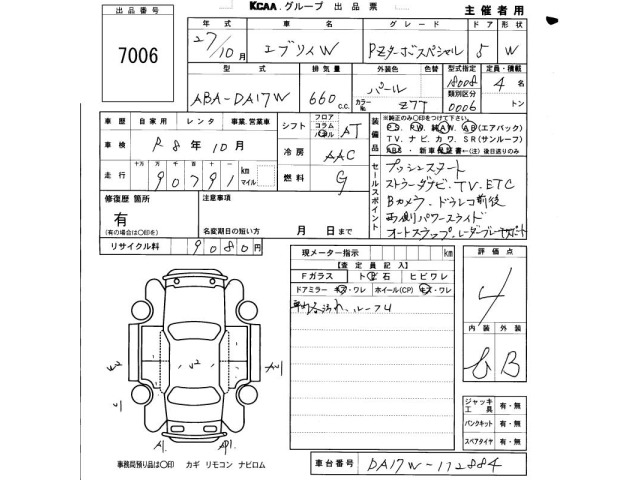 出品番号
7006
KCAA.グループ 出品票
主催者用
年式 車名 グレード ドア 形状
27/10月 エブリィW PZターボスペシャル 5 W
型式 排気量 外装色 色替 型式指定 類別区分 定員・積載
ABA-DA17W 660 c.c. パール カラーNo. Z7T 18008 0006 4名 トン
車歴 自家用 レンタ 事業.営業車
車検 R8年10月
走行 十万 万 千 百 十 一 90791 km マイル
シフト フロア コラム パネル AT
冷房 AAC
燃料 G
装備品
※純正のみ○印をつけて下さい。
PS、PW、純A、AB(エアバック)
TV、ナビ、カワ、SR(サンルーフ)
ABS・新車保証書←(注)後日送りのみ
セールスポイント
プッシュスタート
ストラーダナビ、TV、ETC
Bカメラ、ドラレコ前後
両側パワースライド
オートステップ、レーダーブレーキサポート
修復歴 箇所
有
(有の場合は○印を)
注意事項
名変期日の短い方 月 日まで
リサイクル料 9080円
現メーター指示 km
【査定員記入】
Fガラス トビ石 ヒビワレ
ドアミラー キズ・ワレ ホイール(CP) キズ・ワレ
評価点
4
内装 外装
B
ジャッキ工具 有・無
パンクキット 有・無
スペアタイヤ 有・無
A1
事務局預り品は○印 カギ リモコン ナビロム
車台番号 DA17W-112884